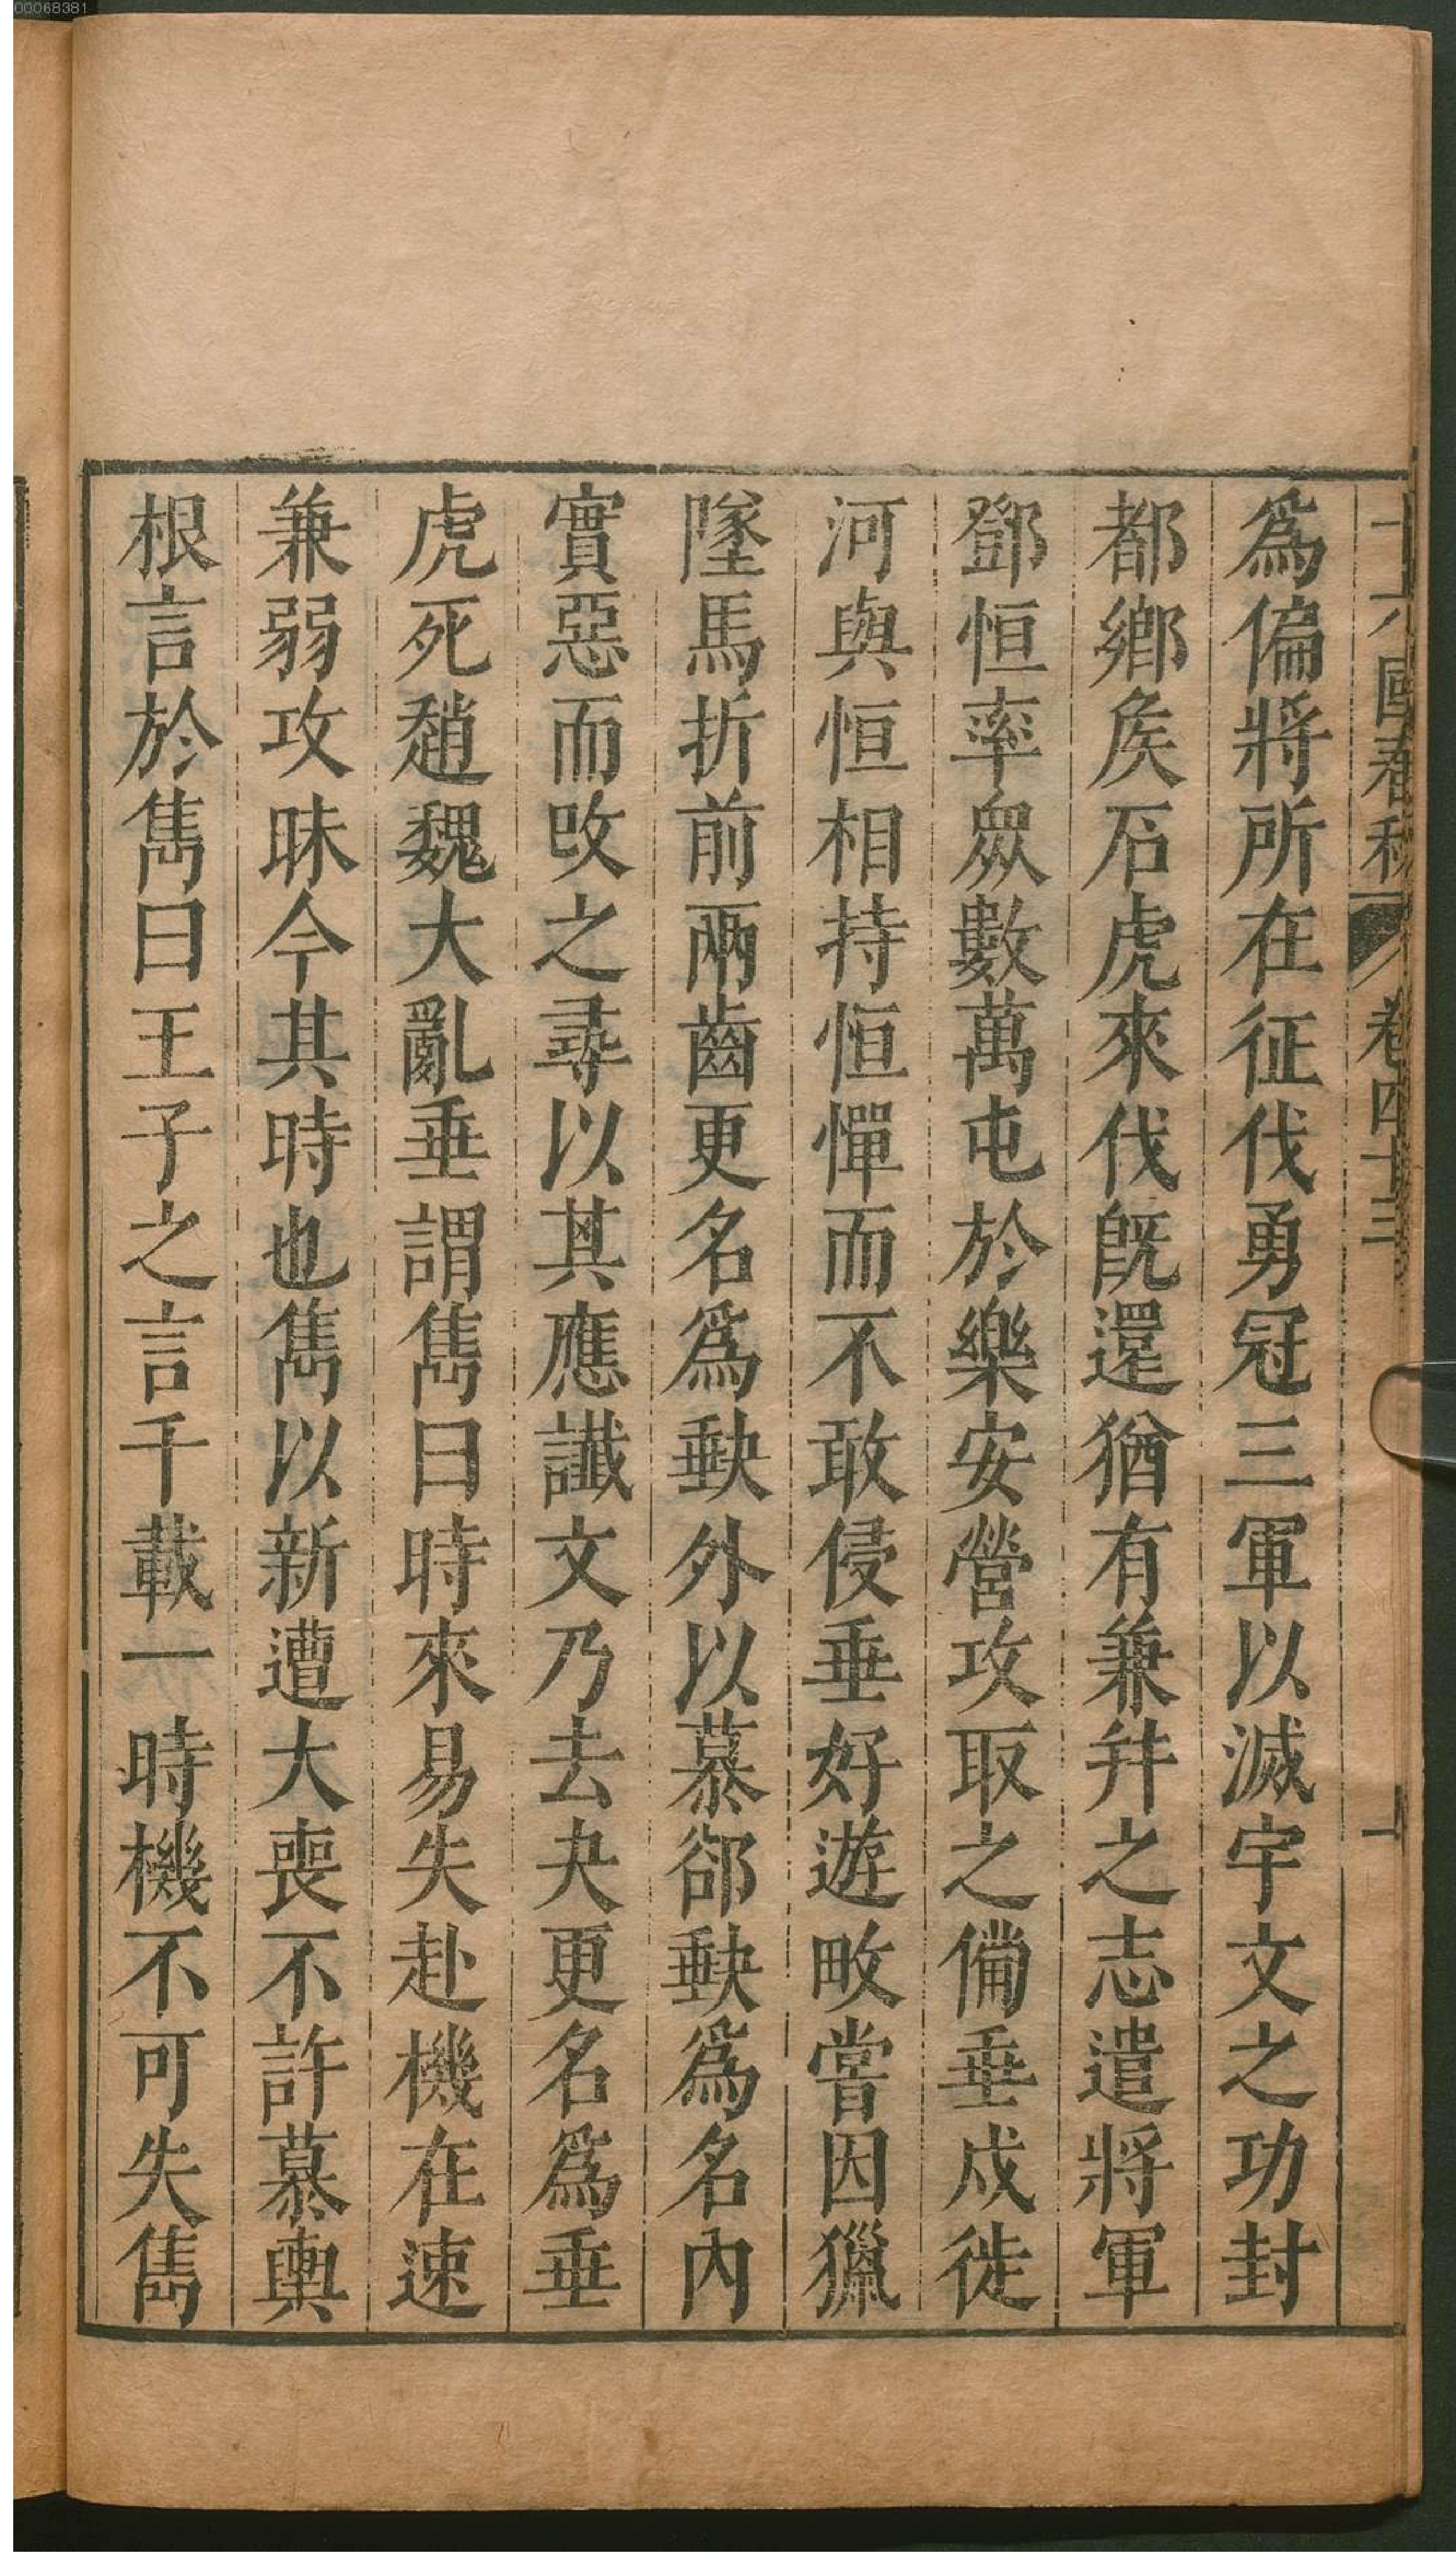 00068381
十六國春秋 卷四十三 一
爲偏將所在征伐勇冠三軍以滅宇文之功封
都鄉矦石虎來伐旣還猶有兼幷之志遣將軍
鄧恒率眾數萬屯於樂安營攻取之備垂戍徙
河與恒相持恒憚而不敢侵垂好遊畋嘗因獵
墜馬折前兩齒更名爲𡙇外以慕郤𡙇爲名內
實惡而攺之尋以其應讖文乃去夬更名爲垂
虎死趙魏大亂垂謂雋曰時來易失赴機在速
兼弱攻昧今其時也雋以新遭大喪不許慕輿
根言於雋曰王子之言千載一時機不可失雋